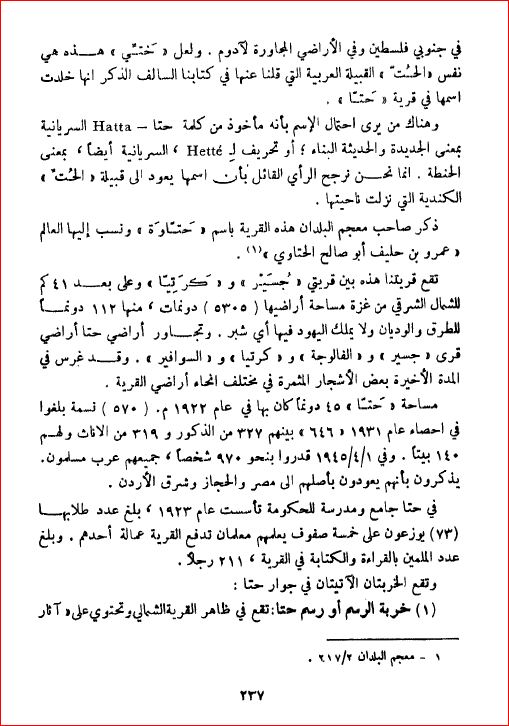 في جنوبي فلسطين وفي الأراضي المجاورة لآدوم . ولعل « حَتّي » هــذه هي
نفس « الحُتّ » القبيلة العربية التي قلنا عنها في كتابنا السالف الذكر انها خلدت
اسمها في قرية « حَتّا » .
وهناك من يرى احتمال الإسم بأنه مأخوذ من كلمة حتا – Hatta السريانية
بمعنى الجديدة والحديثة البناء ؛ أو تحريف لِـ Hetté ، السريانية أيضاً ، بمعنى
الحنطة . انما نحــن نرجح الرأي القائل بأن اسمها يعود الى قبيلة « الحُتّ »
الكندية التي نزلت ناحيتها .
ذكر صاحب معجم البلدان هذه القرية باسم « حَتّاوَة » ونسب إليها العالم
« عمرو بن حليف أبو صالح الحتاوي » (١) .
تقع قريتنا هذه بين قريتي « جُسَيْر » و « كَرَتِيّا » وعلى بعــد ٤١ كم
للشمال الشرقي من غزة مساحة أراضيها ( ٥٣٠٥ ) دونمات ، منها ١١٢ دونمــاً
للطرق والوديان ولا يملك اليهود فيها أي شبر . وتجــاور أراضي حتا أراضي
قرى « جسير » و « الفالوجة » و « كرتيا » و « السوافير » . وقــد غرس في
المدة الأخيرة بعض الأشجار المثمرة في مختلف انحاء أراضي القرية .
مساحة « حَتّا » ٤٥ دونماً كان بها في عام ١٩٢٢ م. ( ٥٧٠ ) نسمة بلغوا
في احصاء عام ١٩٣١ « ٦٤٦ » بينهم ٣٢٧ من الذكور و ٣١٩ من الاناث ولهــم
١٤٠ بيتاً . وفي ١٩٤٥/٤/١ قدروا بنحو ٩٧٠ شخصاً ، جميعهم عرب مسلمون.
يذكرون بأنهم يعودون بأصلهم الى مصر والحجاز وشرق الأردن .
في حتا جامع ومدرسة للحكومة تأسست عام ١٩٢٣ ، بلغ عدد طلابهــا
(٧٣) يوزعون على خمسة صفوف يعلمهم معلمان تدفع القرية عمالة أحدهم . وبلغ
عدد الملمين بالقراءة والكتابة في القرية ، ٢١١ رجلاً .
وتقع الخربتان الآتيتان في جوار حتا :
(١) خربة الرسم أو رسم حتا: تقع في ظاهر القرية الشمالي وتحتوي على « آثار
١ - معجم البلدان ٢١٧/٢ .
٢٣٧